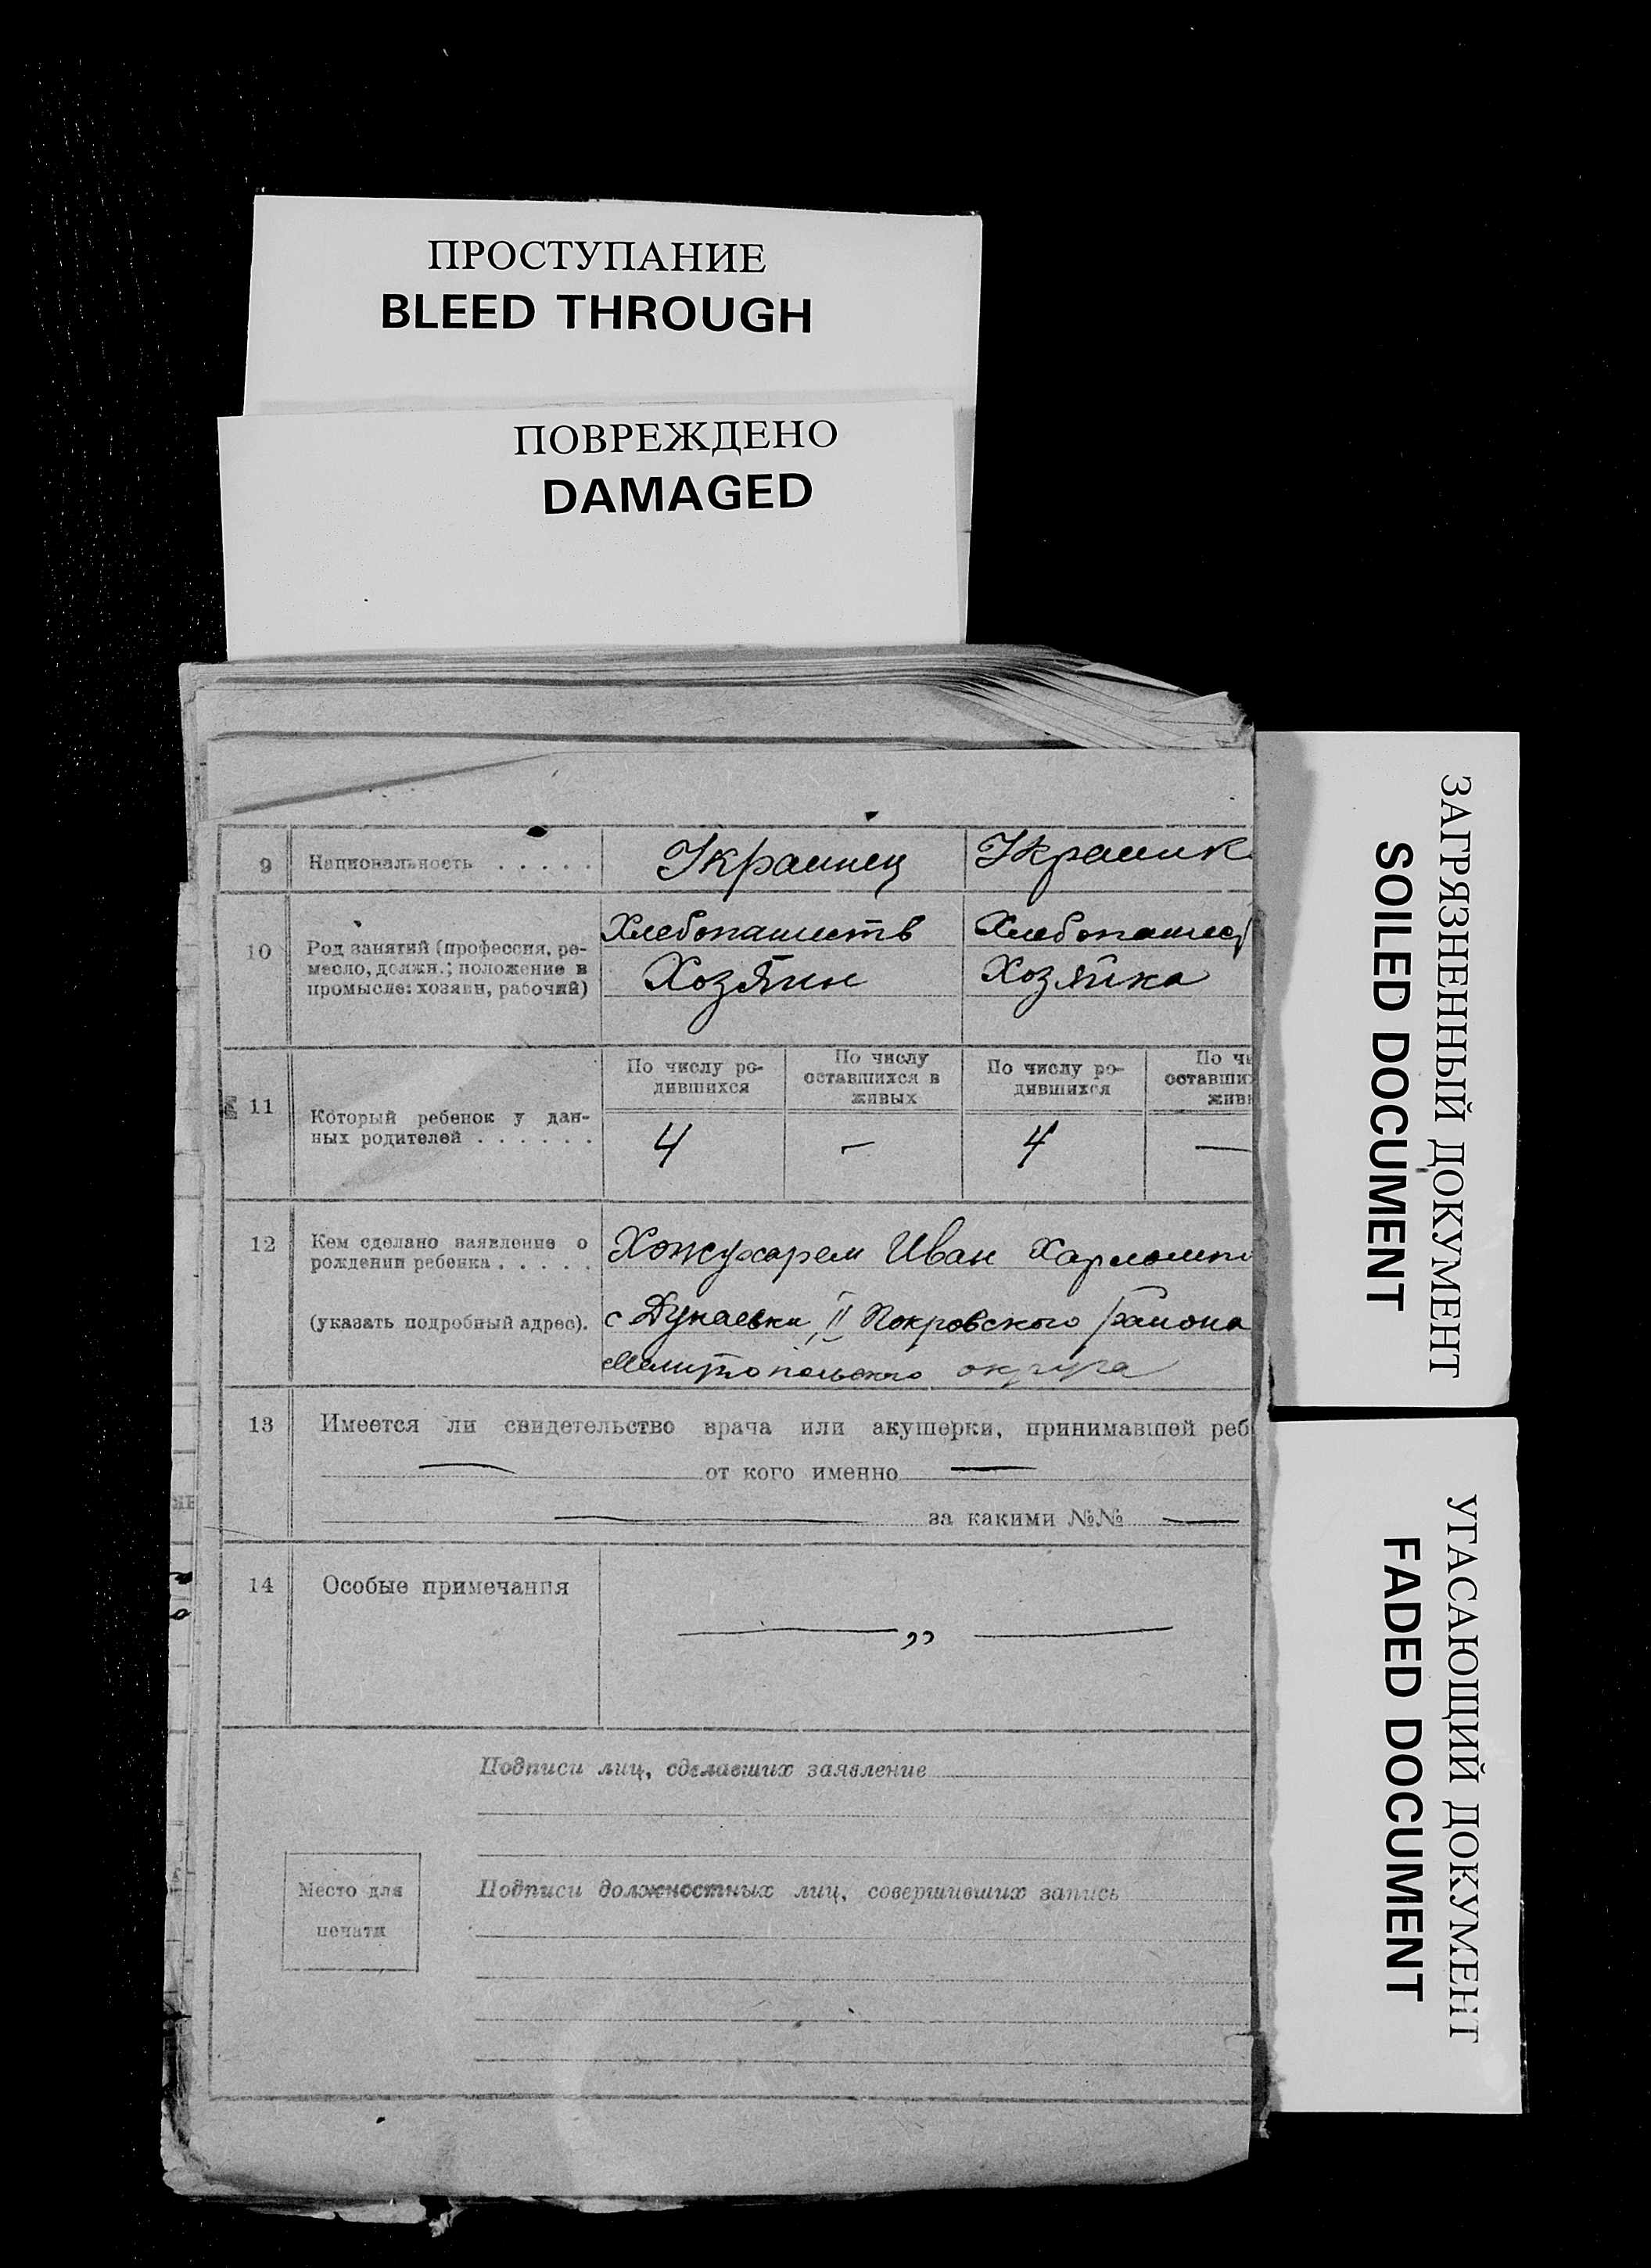 ПРОСТУПАНИЕ
BLEED THROUGH
ПОВРЕЖДЕНО
DAMAGED
ЗАГРЯЗНЕННЫЙ ДОКУМЕНТ
SOILED DOCUMENT
УГАСАЮЩИЙ ДОКУМЕНТ
FADED DOCUMENT
9 Национальность . . . . . Украинец Украинк
10 Род занятий (профессия, ре-
месло, должн.; положение в
промысле: хозяин, рабочий)
Хлебопашеств Хлебопашес
Хозяин Хозяйка
11 Который ребенок у дан-
ных родителей . . . . . .
По числу ро-
дившихся
По числу
оставшихся в
живых
По числу ро-
дившихся
По чи
оставших
живы
4 — 4 —
12 Кем сделано заявление о
рождении ребенка . . . . .
(указать подробный адрес).
Иван
с Дунаевки II Покровского района
Мелитопольского округа
13 Имеется ли свидетельство врача или акушерки, принимавшей реб
— от кого именно —
— за какими №№ —
14 Особые примечания
— „ —
Подписи лиц, сделавших заявление
Место для
печати
Подписи должностных лиц, совершивших запись